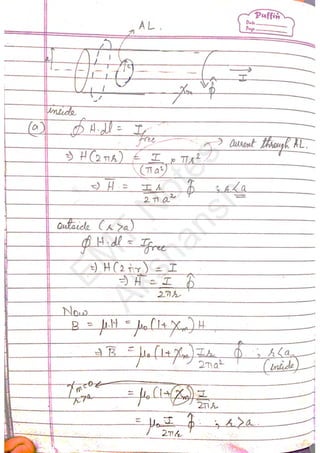 Puffin
Date
Page
AL.
a
r
I
χm φ̂
inside
(a) ∮ H·dl = Ifree
→ Current through AL.
⇒ H(2πr) = I/(πa²) × πr²
⇒ H̄ = Ir/2πa² φ̂ ; r<a
outside (r>a)
∮ H·dl = Ifree
⇒ H(2πr) = I
⇒ H̄ = I/2πr φ̂
Now
B = μH = μ₀(1+χm)H
⇒ B̄ = μ₀(1+χm) Ir/2πa² φ̂ ; r<a (inside)
χm=0 r>a
= μ₀(1+χm) I/2πr
= μ₀ I/2πr φ̂ ; r>a
EMT Notes